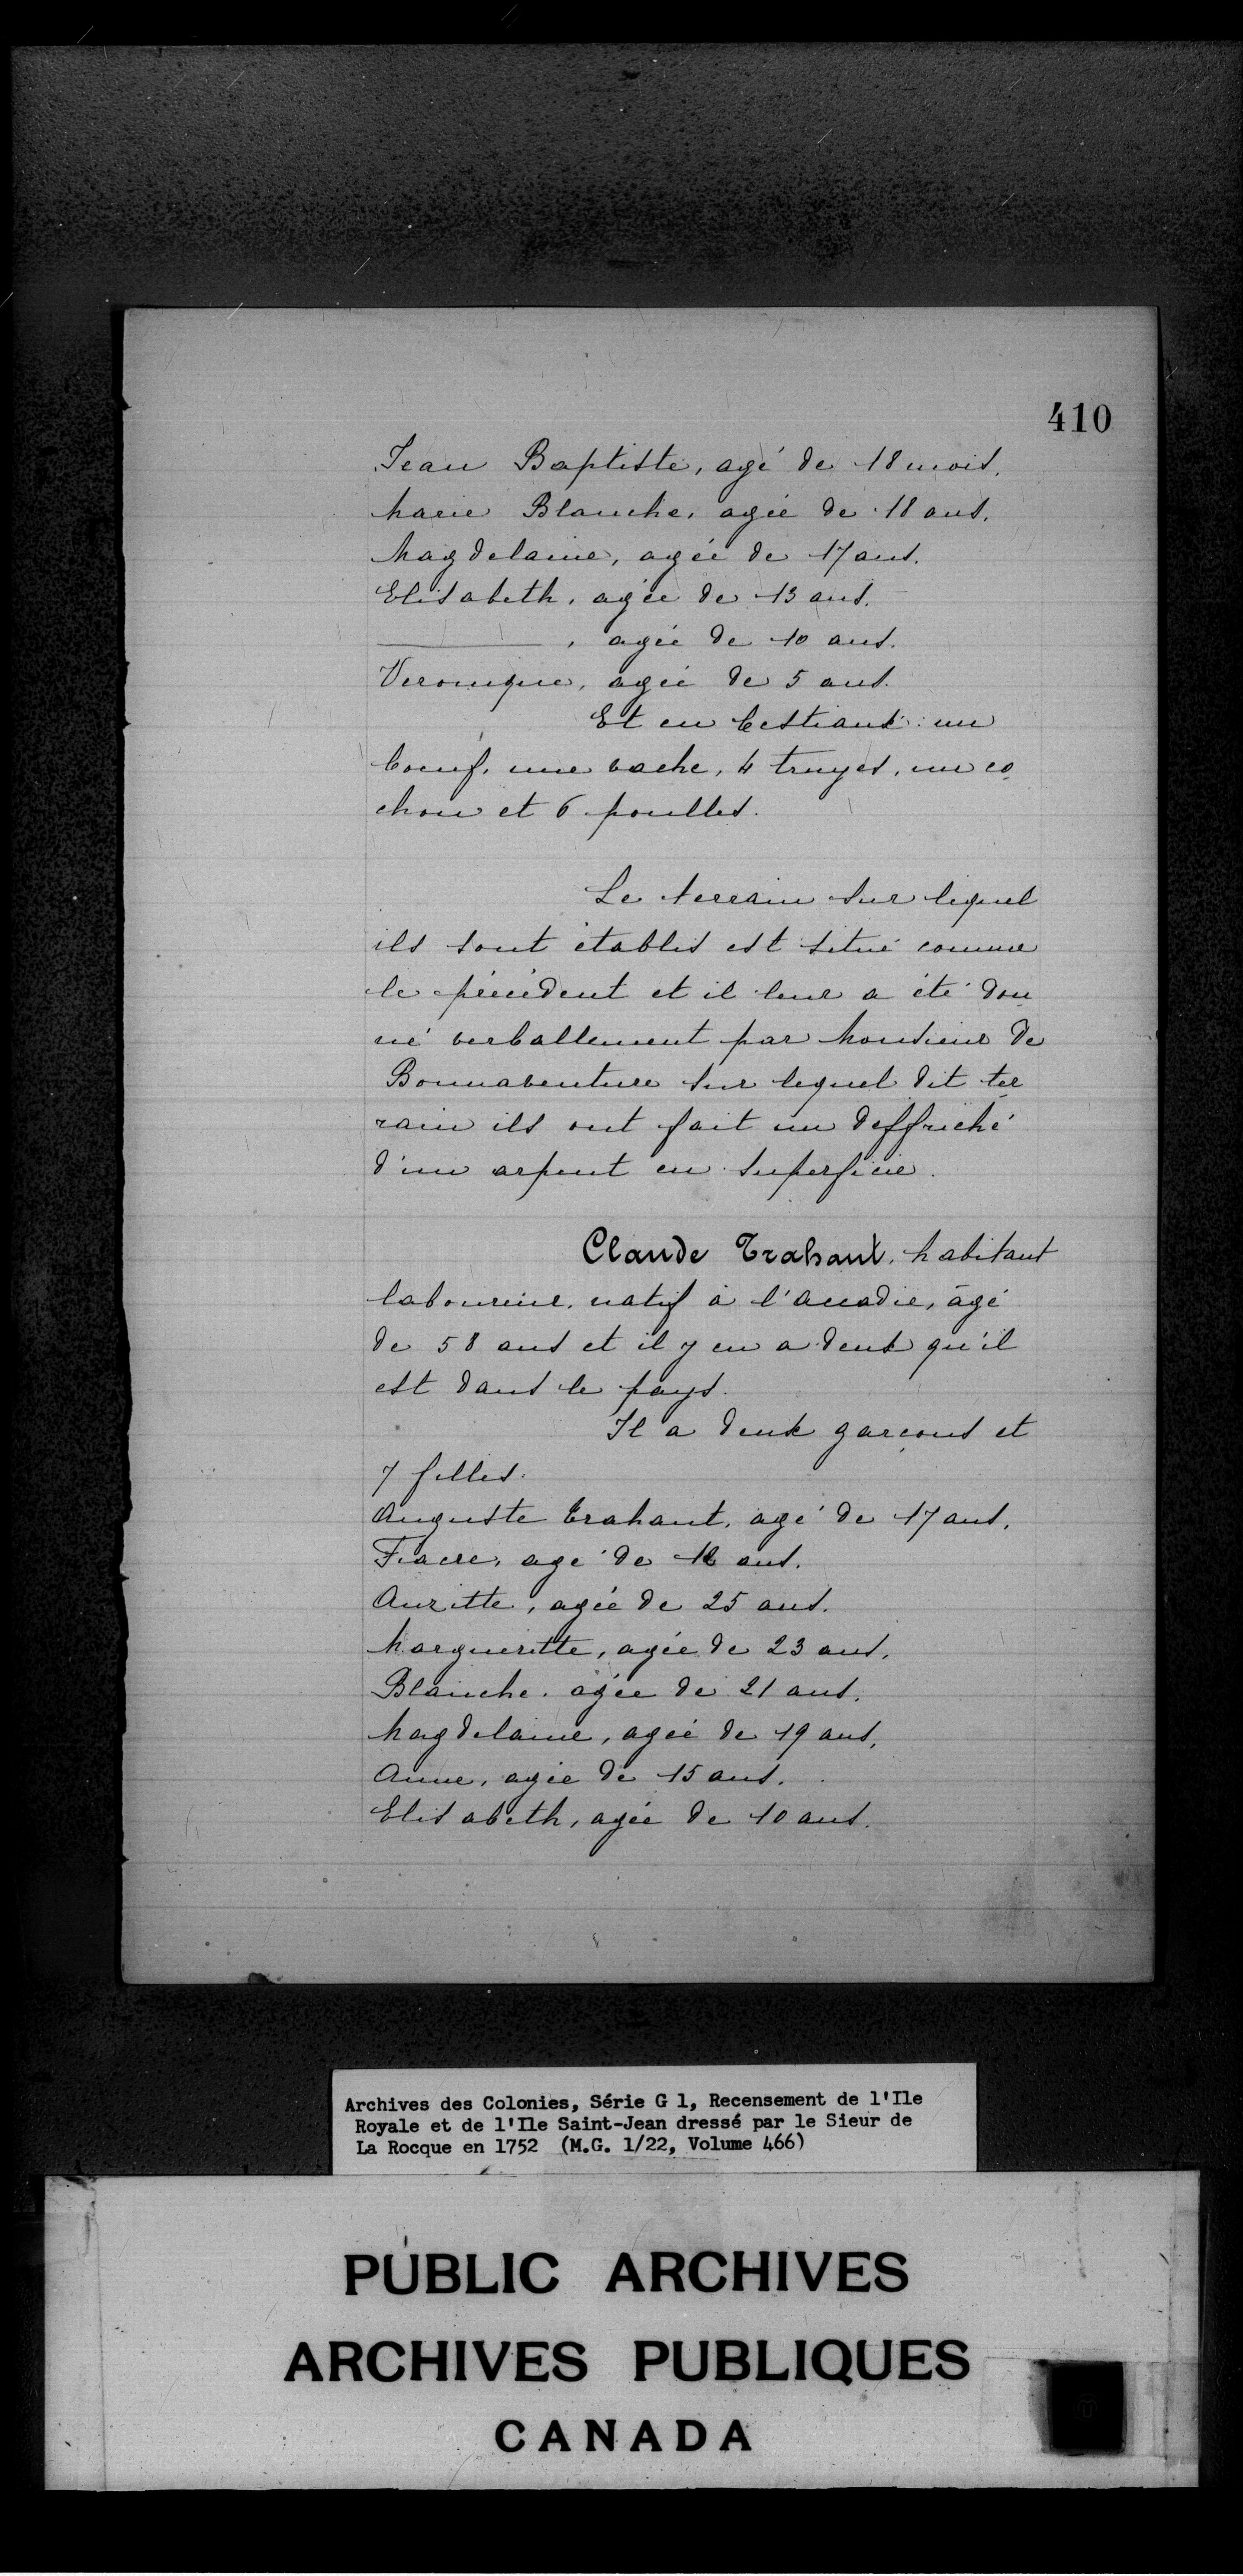 410
Jean Baptiste, agé de 18 mois.
Marie Blanche, agée de 18 ans.
Magdelaine, agée de 17 ans.
Elisabeth, agée de 13 ans.
, agée de 10 ans.
Veronique, agée de 5 ans.
Et en bestiaux: un
boeuf, une vache, 4 truyes, un co
chon et 6 poulles.
Le terrain sur lequel
ils sont établis est situé comme
le précédent et il leur a été don
né verballement par Monsieur de
Bonnaventure sur lequel dit ter
rain ils ont fait un deffriché
d'un arpent en superficie.
Claude Trahant, habitant
laboureur, natif à l'accadie, âgé
de 58 ans et il y en a deux qu'il
est dans le pays.
Il a deux garçons et
7 filles.
Auguste Trahant, agé de 17 ans.
Fiacre, agé de ans.
Auzitte, agée de 25 ans.
Margueritte, agée de 23 ans.
Blanche, agée de 21 ans.
Magdelaine, agée de 19 ans.
Anne, agée de 15 ans.
Elisabeth, agée de 10 ans.
Archives des Colonies, Série G 1, Recensement de l'Ile
Royale et de l'Ile Saint-Jean dressé par le Sieur de
La Rocque en 1752 (M.G. 1/22, Volume 466)
PUBLIC ARCHIVES
ARCHIVES PUBLIQUES
CANADA